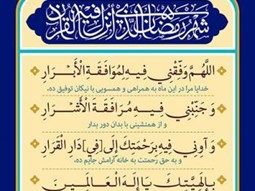 شَهْرُ رَمَضَانَ الَّذِي أُنْزِلَ فِيهِ الْقُرْآنُ
اَللّهُمَّ وَفِّقْنِي فِيهِ لِمُوَافَقَةِ الْأَبْرَارِ
خدایا مرا در این ماه به همراهی و همسویی با نیکان توفیق ده،
وَ جَنِّبْنِي فِيهِ مُرَافَقَةَ الْأَشْرَارِ
و از همنشینی با بدان دور بدار
وَ آوِنِي فِيهِ بِرَحْمَتِكَ إِلَى [فِي] دَارِ الْقَرَارِ
و به حق رحمتت به خانه آرامش جایم ده،
بِإِلَهِيَّتِكَ يَا إِلَهَ الْعَالَمِينَ